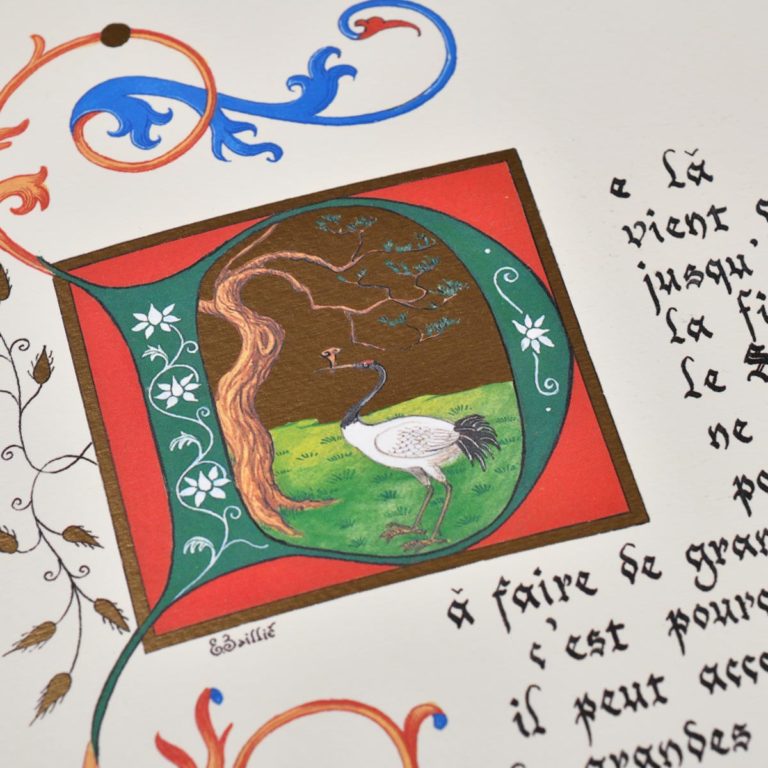 De là
vient
jusqu'
la fi
le S
ne
po
à faire de gran
c'est pourq
il peut acco
grandes
E Baillié